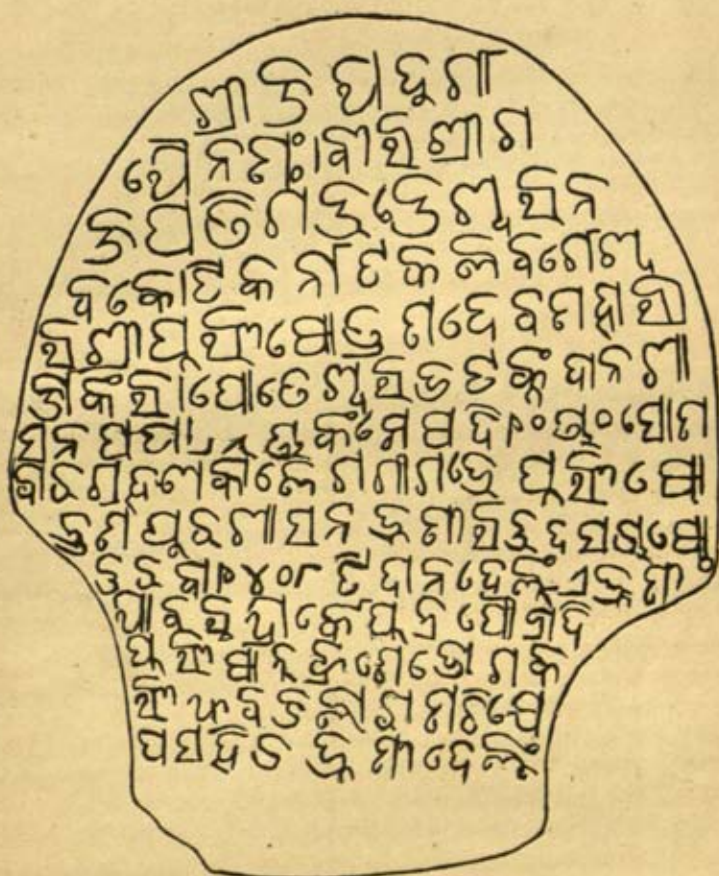 ଶ୍ରୀ ଜୟ ଦୁର୍ଗା
ଯୈ ନମଃ। ବୀର ଶ୍ରୀ ଗ
ଜପତି ଗଉଡେଶ୍ୱର ନ
ବକୋଟି କର୍ନାଟ କଲବର୍ଗେଶ୍ୱ
ର ଶ୍ରୀ ପୁରୁଷୋତ୍ତମଦେବ ମହାରା
ଜାଙ୍କର। ପୋତେଶ୍ୱର ଭଟଙ୍କୁ ଦାନ ଶା
ସନ ପଟା। ଏ ୫ ଅଙ୍କ ମେଷ ଦି ୧୦ ଅଂ ସୋମ
ବାର ଗ୍ରହଣ କାଲେ ଗଙ୍ଗାଗର୍ଭେ ପୁରୁଷୋ
ତ୍ତମପୁର ଶାସନ ଭୂମି ଚଉଦସ ଅଷ୍ଟୋ
ତ୍ତର ବା ୧୪୦୮ ଟି ଦାନ ଦେଲୁଁ ଏ ଭୂମି
ଯାବଚନ୍ଦ୍ରାର୍କେ ପୁତ୍ର ପୌତ୍ରାଦି
ପୁରୁଷାନୁକ୍ରମେ ଭୋଗ କ
ରୁଥିବ ଜଲାରାମ ନିକ୍ଷେ
ପ ସହିତ ଭୂମି ଦେଲୁଁ